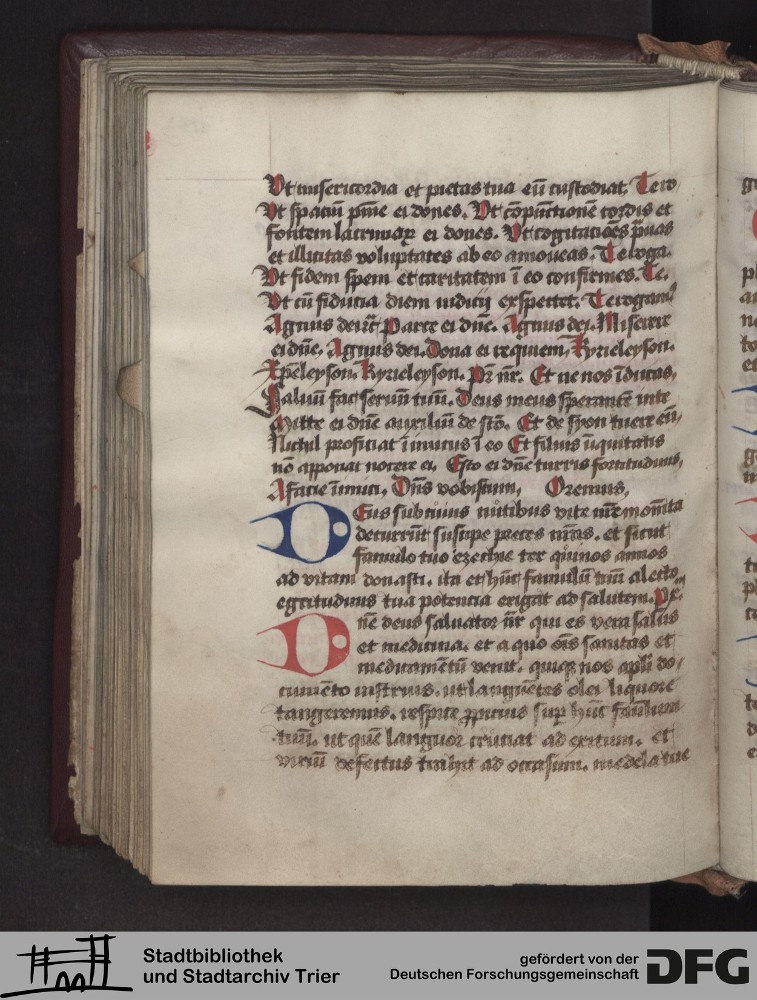 Vt misericordia et pietas tua eū custodiat. Te ro
Vt spaciū pīne ei dones. Vt cōpūctionē cordis et
fontem lacrimaꝝ ei dones. Vt cogitacōes pͣuas
et illicitas voluptates ab eo amoueas. Te roga.
Vt fidem spem et caritatem ī eo confirmes. Te.
Vt cū fiducia diem iudicij exspectet. Te rogam⁹
Agnus dei Parce ei dn̄e. Agnus dei. Miserere
ei dn̄e. Agnus dei. Dona ei requiem. Kyrieleyson.
Xp̄eleyson. Kyrieleyson. Pr̄ nr̄. Et ne nos īducas.
Saluū fac seruū tuū. Deus meus sperantē in te
Mitte ei dn̄e auxiliū de scō. Et de syon tuere eū.
Nichil proficiat īimicus ī eo Et filius īiquitatis
nō apponat nocere ei. Esto ei dn̄e turris fortitudinis.
A facie īimici. Dn̄s vobiscum. Oremus.
Deus sub cuius nutibus vite nr̄e momēta
decurrūt suscipe preces nr̄as. et sicut
famulo tuo ezechie ter quinos annos
ad vitam donasti. ita et hūc famulū tuū a lecto
egritudinis tua potencia erigat ad salutem. Pr̄.
Dn̄e deus saluator nr̄ qui es vera salus
et medicina. et a quo ōis sanitas et
medicamētū venit. quiqꝫ nos apl̄i do
cumēto instruis. ut languētes olei liquore
tangeremus. respice ꝓpicius suꝑ hūc famulum
tuū. ut quē languor cruciat ad exitum. et
viriū defectus trahit ad occasum. medela tue
Stadtbibliothek
und Stadtarchiv Trier
gefördert von der
Deutschen Forschungsgemeinschaft
DFG